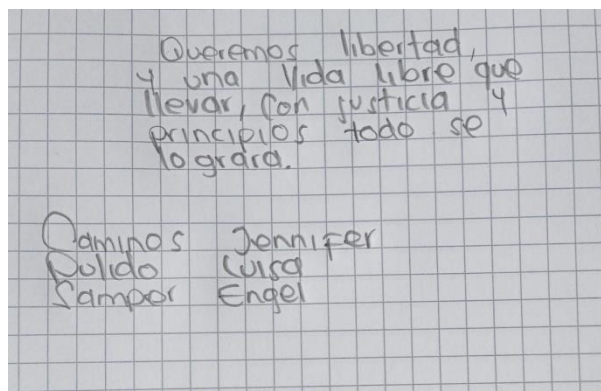 Queremos libertad,
y una vida libre que
llevar, con justicia y
principios todo se
lograra.
Caminos Jennifer
Pulido Luisa
Samper Engel